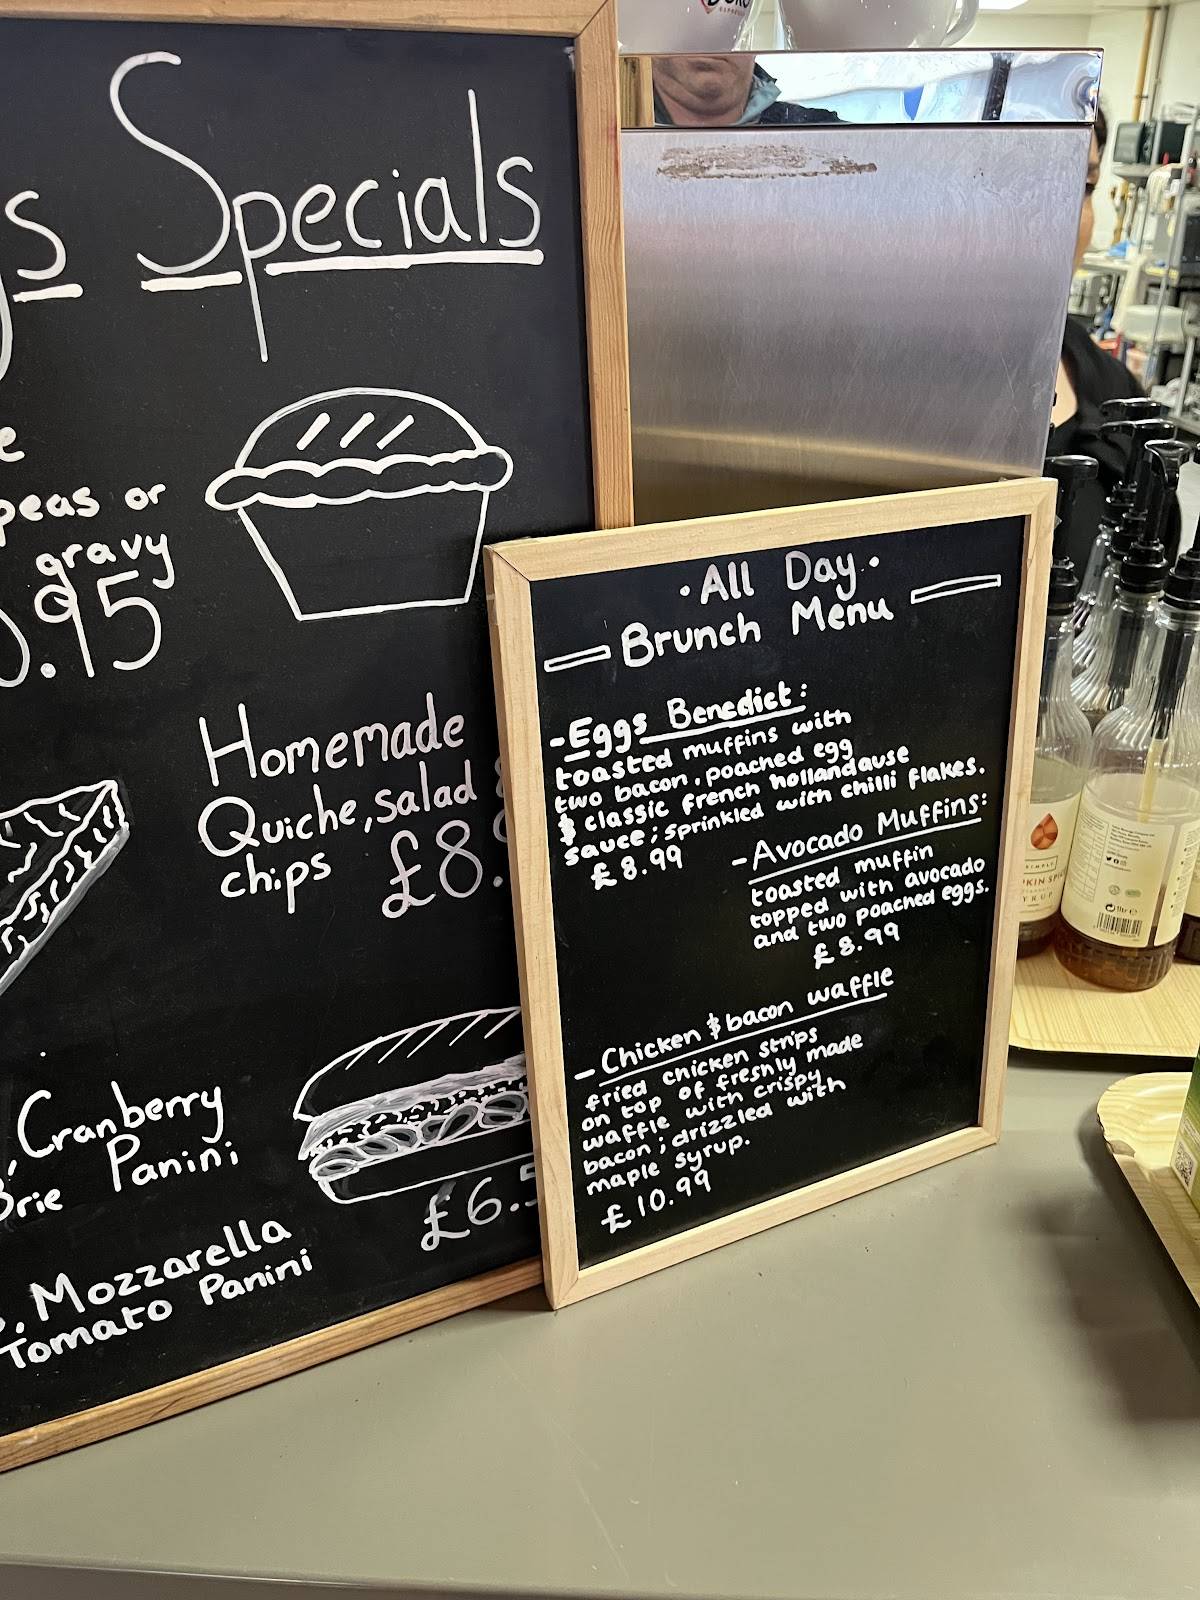 Specials
peas or
gravy
.95
Homemade
Quiche, salad
chips
£8.
Cranberry
Brie Panini
£6.5
Mozzarella
Tomato Panini
·All Day·
Brunch Menu
-Eggs Benedict:
toasted muffins with
two bacon, poached egg
& classic french hollandause
sauce; sprinkled with chilli flakes.
£8.99
-Avocado Muffins:
toasted muffin
topped with avocado
and two poached eggs.
£8.99
- Chicken & bacon waffle
fried chicken strips
on top of freshly made
waffle with crispy
bacon; drizzled with
maple syrup.
£10.99